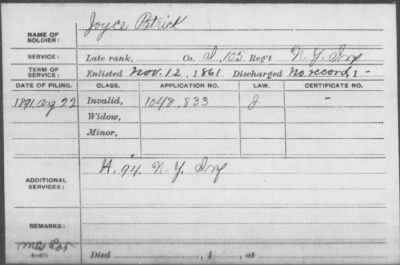 NAME OF SOLDIER: Joyce Patrick
SERVICE: Late rank, Co. I, 105 Reg't N.Y. Inf
TERM OF SERVICE: Enlisted Nov. 12, 1861 Discharged No record, 1 -
DATE OF FILING. CLASS. APPLICATION NO. LAW. CERTIFICATE NO.
1891 Aug 22 Invalid, 1048.833 J. -
Widow,
Minor,
ADDITIONAL SERVICES: H. 94. N.Y. Inf
REMARKS:
Died , 1 , at